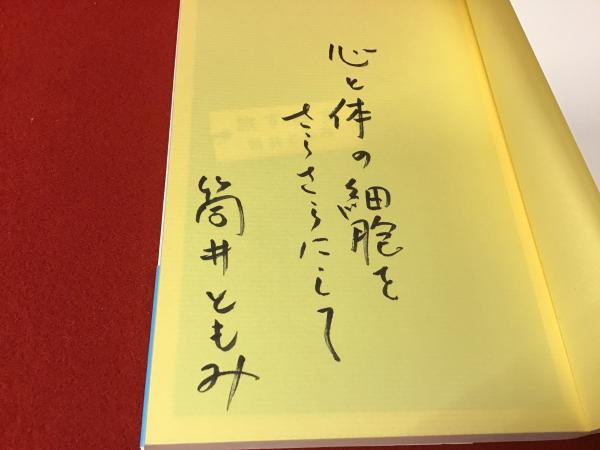 心と体の細胞を
さらさらにして
筒井ともみ